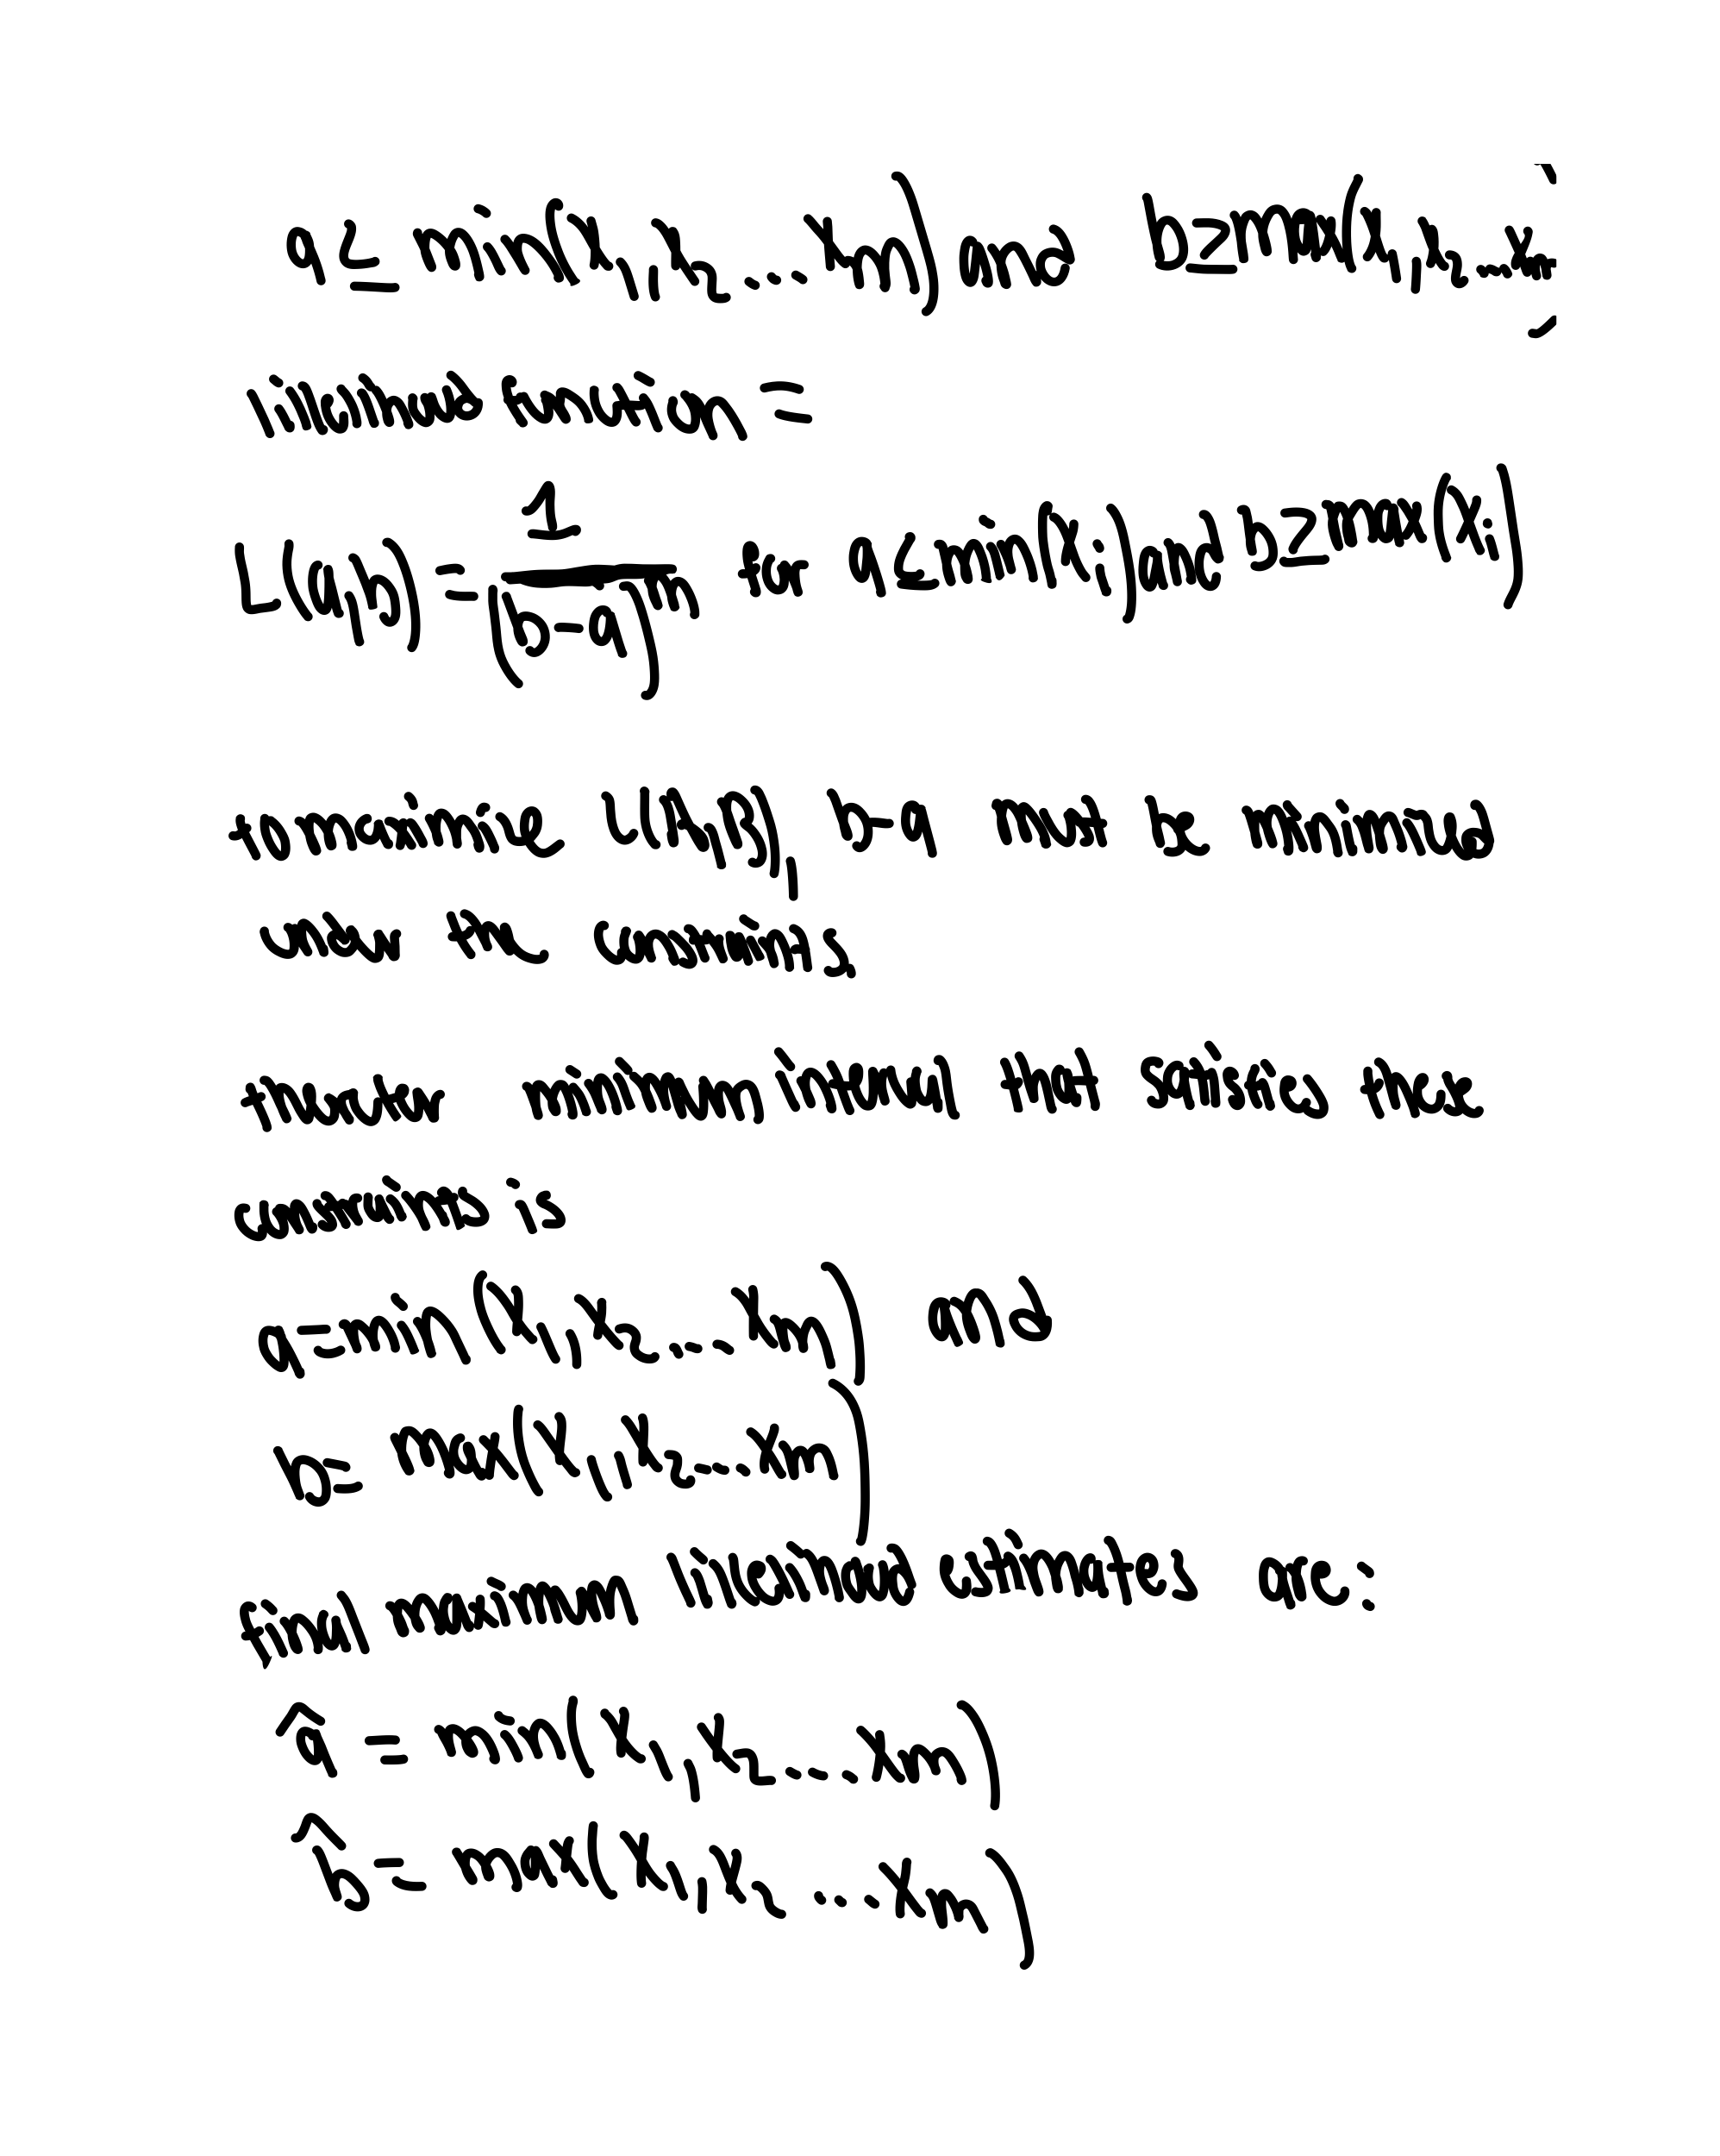 a ≤ min(x1, x2....xm) and b≥max(x1,x2...xm)
likelihood function =
L(a,b) = 1/(b-a)^m for a≤min(xi) and b≥max(xi)
to maximize L(a,b), b-a must be minimized
under the constraints.
therefore minimum interval that satisfies these
constraints is
a=min(x1,x2....xm) and
b= max(x1,x2....xm)
final maximum likelihood estimates are:
â = min(x1,x2....xm)
b̂ = max(x1,x2....xm)